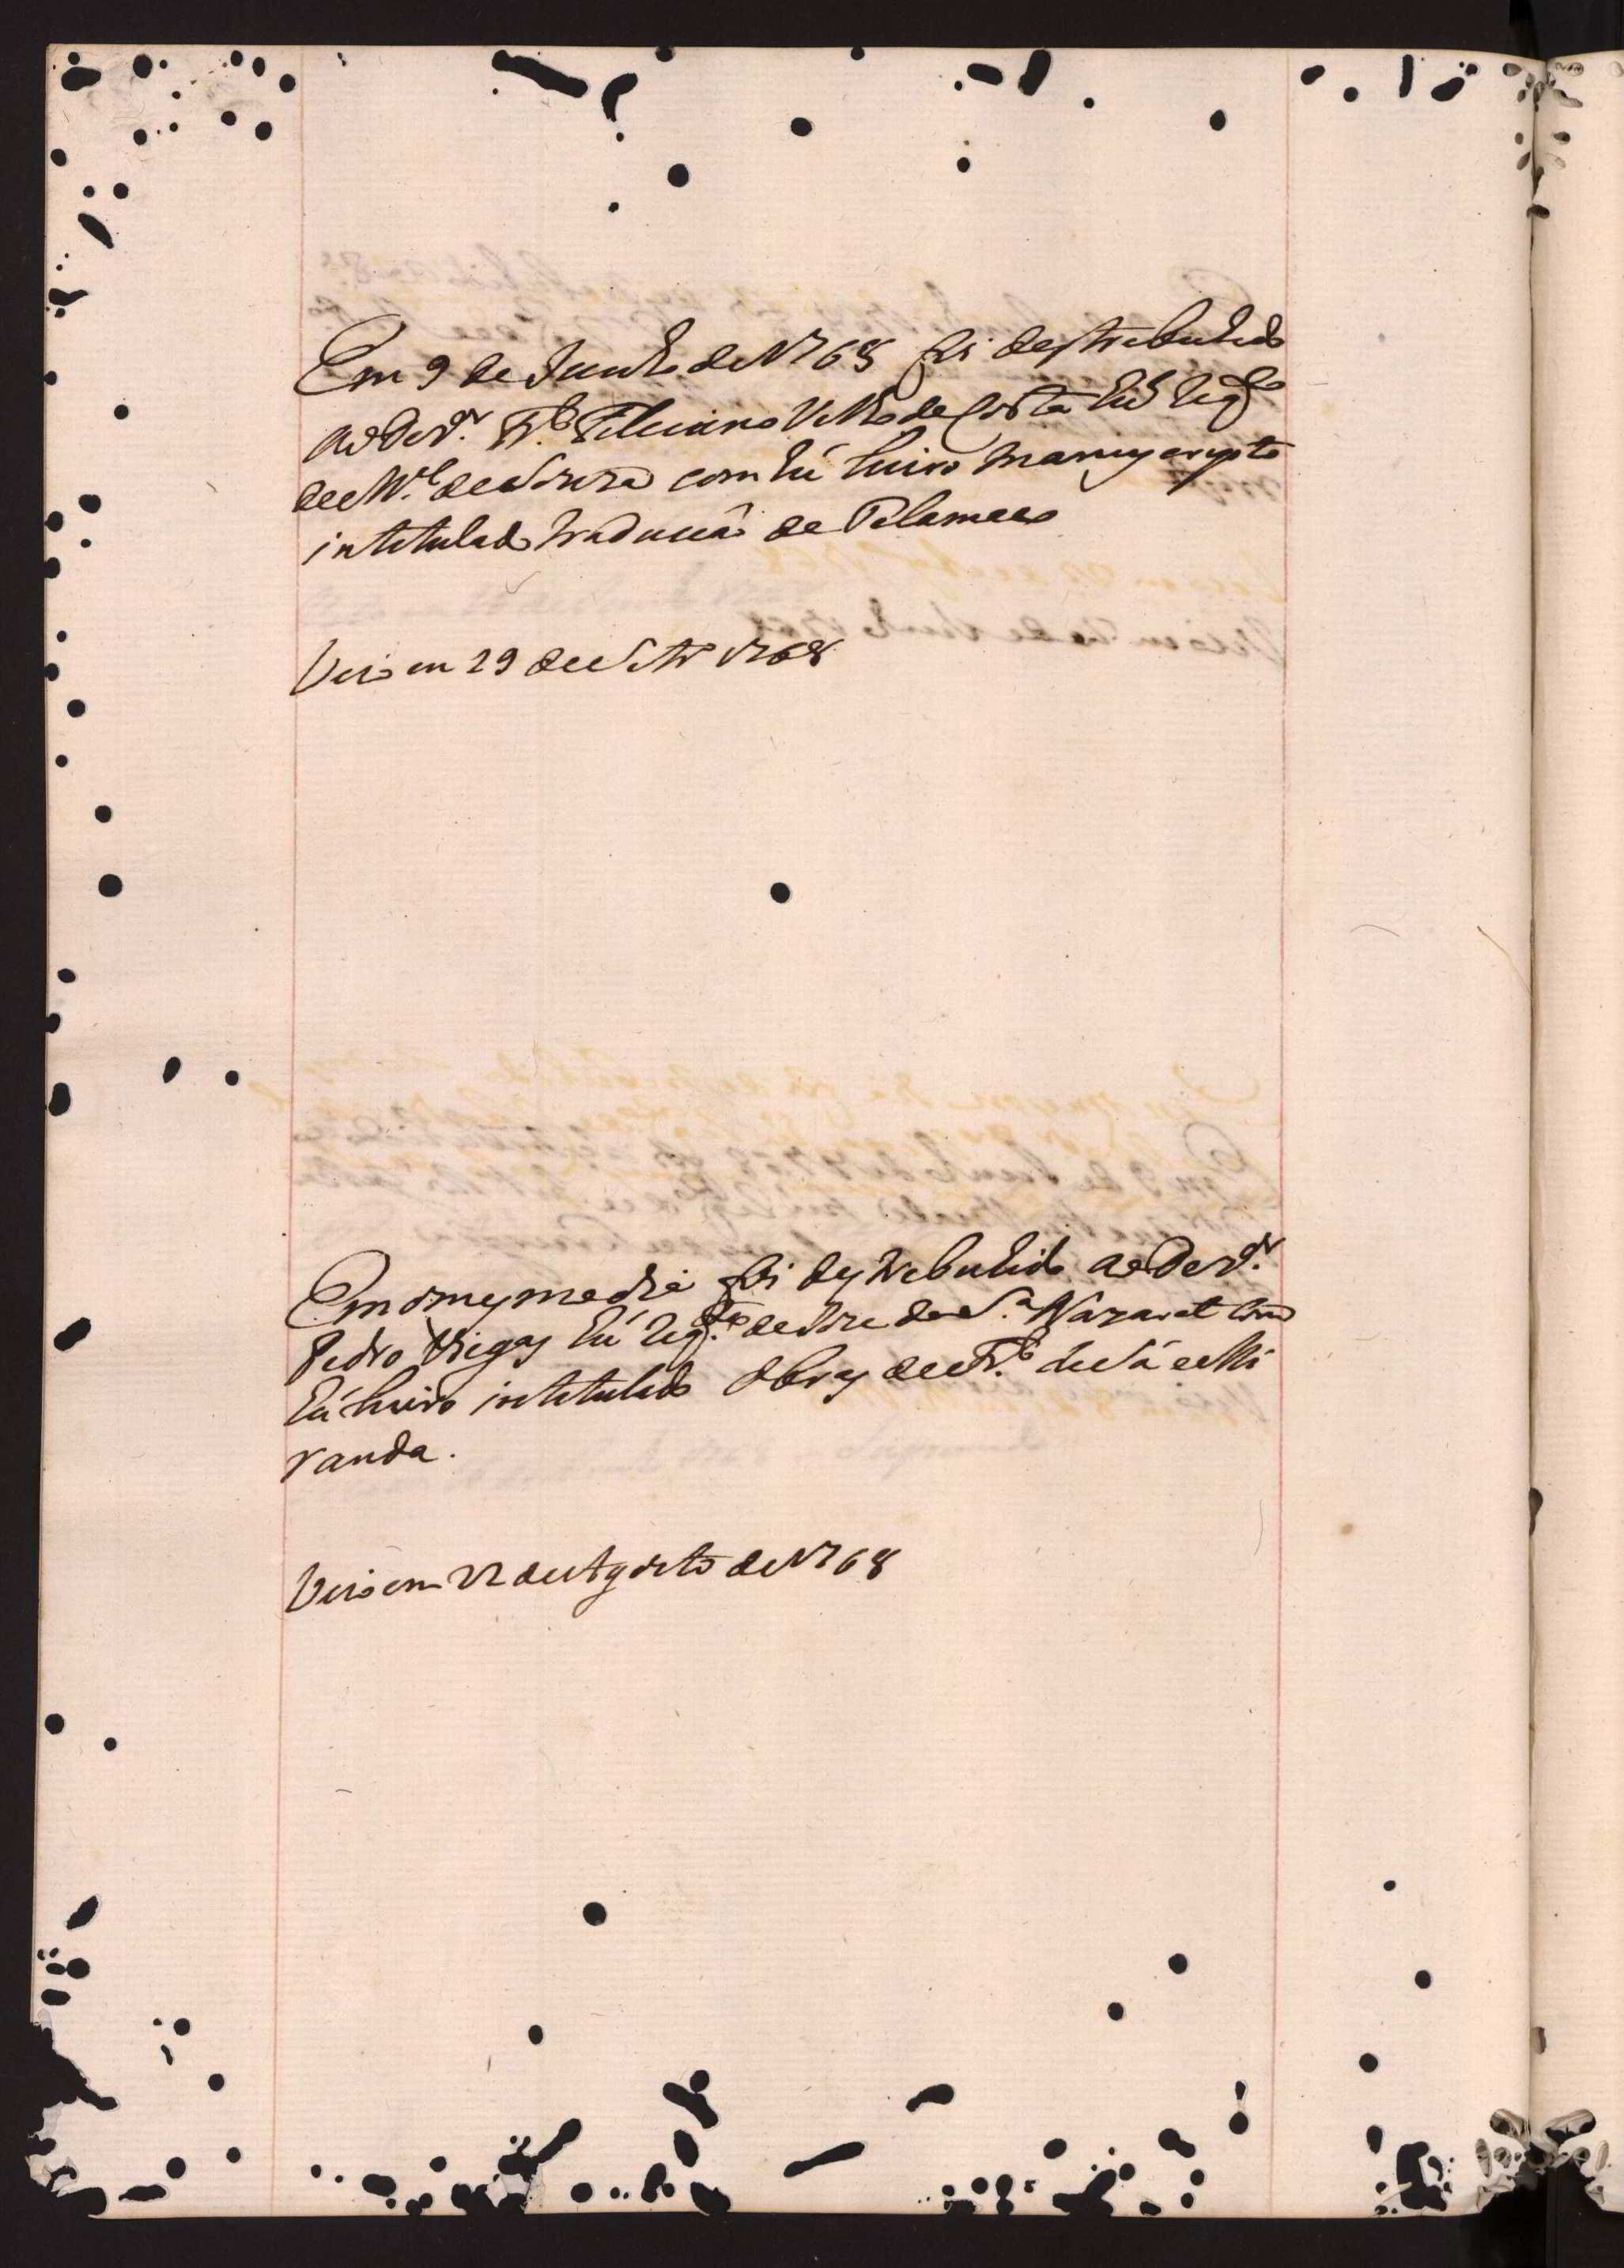 Em 9 de Junho de 1768 foi destrebuhido
ao Dez.or Fr.co Feleciano Velho da Costa hũ reg.to
de M.el de Souza com hũ livro manuscripto
intitulado traducaõ de
Veio em 29 de Setr.o 1768
Em o mesmo dia foi destrebuhido ao Dez.or
Pedro Viegas hũ reg.to de Joze da S.a Nazaret com
hũ livro intitulado obras de Fr.co de Sá e Mi
randa.
Veio em 22 de Agosto de 1768